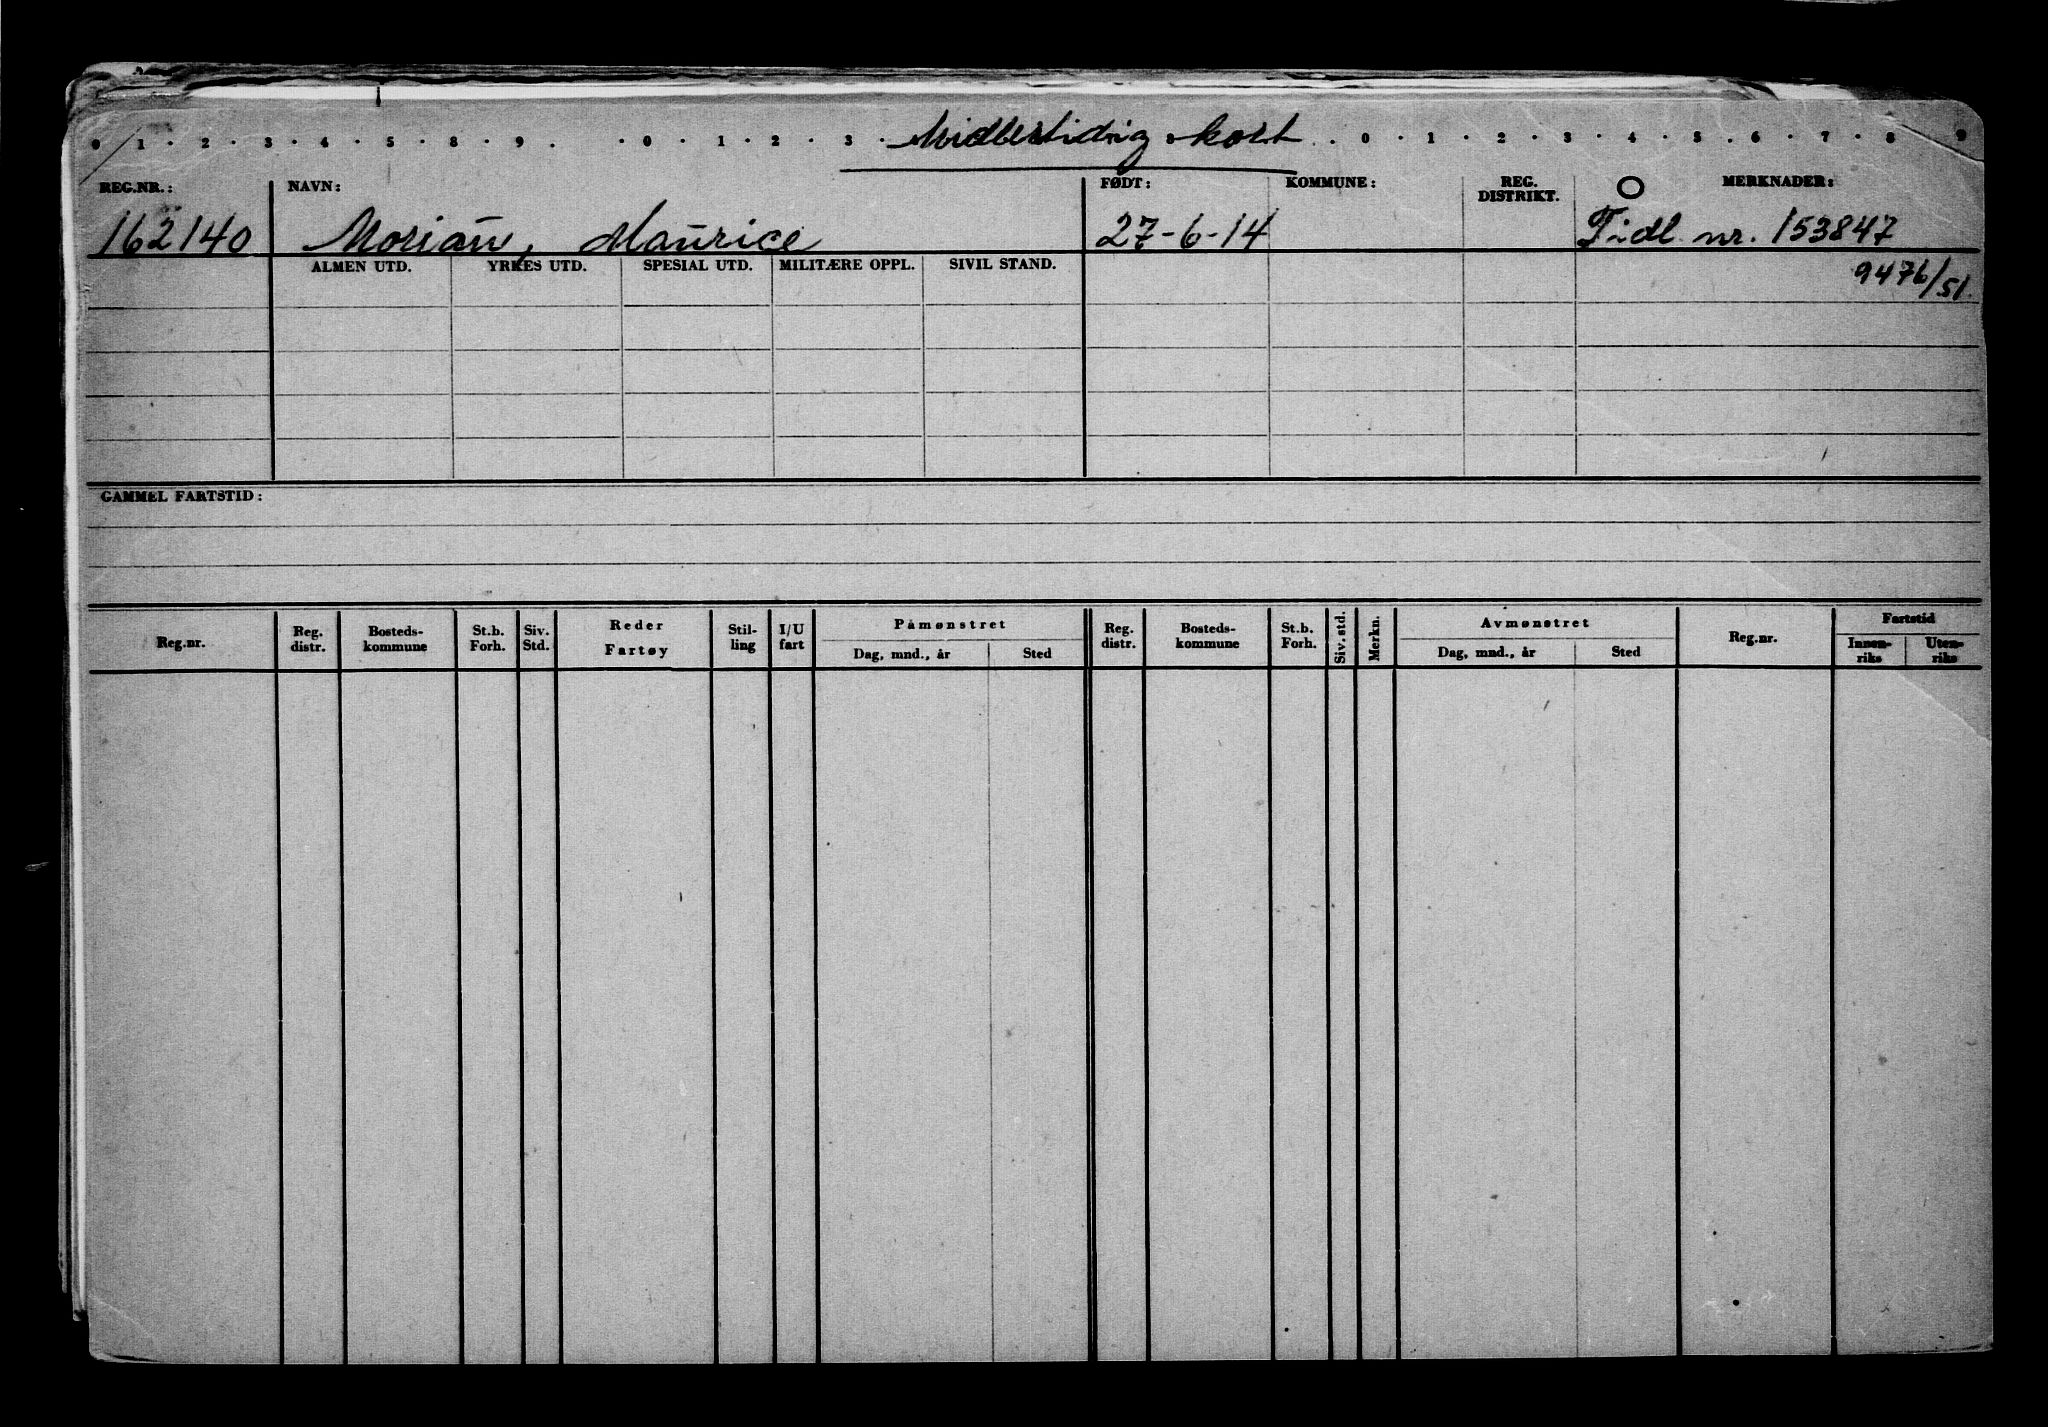 0 1 · 2 · 3 · 4 · 5 · 8 · 9 . · 0 · 1 · 2 · 3 · Midlertidig kort . . 0 · 1 · 2 · 3 · 4 · 5 . 6 · 7 · 8 · 9
REG.NR.: NAVN: FØDT: KOMMUNE: REG. DISTRIKT. O MERKNADER:
162140 Morian, Maurice 27-6-14 Tidl. nr. 153847
ALMEN UTD. YRKES UTD. SPESIAL UTD. MILITÆRE OPPL. SIVIL STAND. 9476/51.
GAMMEL FARTSTID:
Reg.nr. Reg. distr. Bosteds-kommune St.b. Forh. Siv. Std. Reder Fartøy Stil-ling I/U fart Påmønstret Dag, mnd., år Sted Reg. distr. Bosteds-kommune St.b. Forh. Siv. std. Merkn. Avmønstret Dag, mnd., år Sted Reg.nr. Fartstid Innen-riks Uten-riks